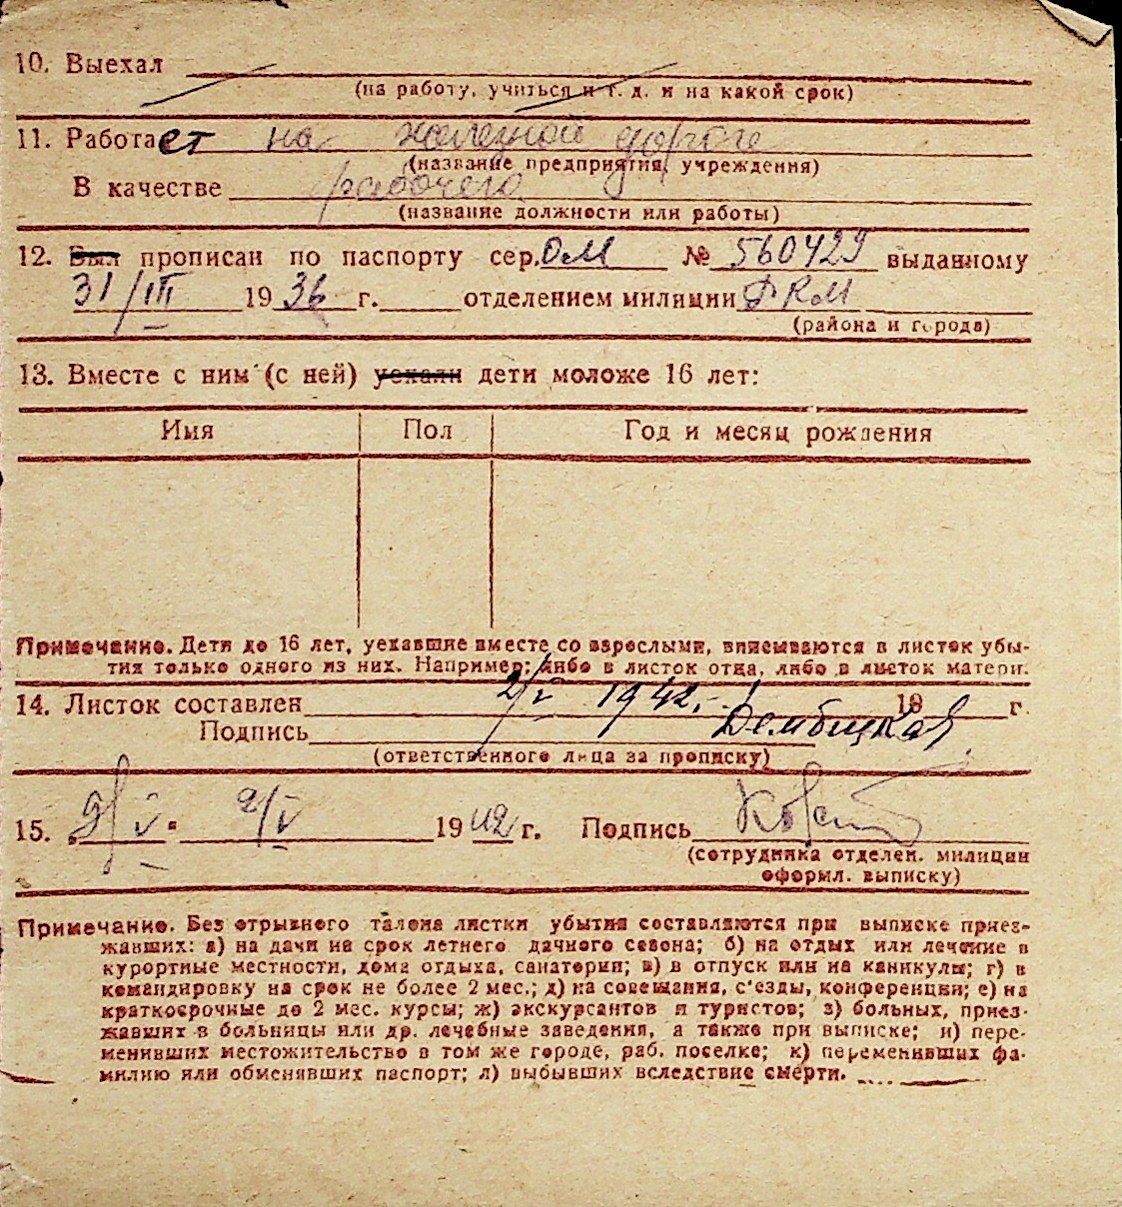 10. Выехал
(на работу, учиться и т. д. и на какой срок)
11. Работает на железной дороге
(название предприятия, учреждения)
В качестве рабочего
(название должности или работы)
12. Был прописан по паспорту сер. ОМ № 560429 выданному
31/III 1936 г. отделением милиции РКМ
(района и города)
13. Вместе с ним (с ней) уехали дети моложе 16 лет:
Имя Пол Год и месяц рождения
Примечание. Дети до 16 лет, уехавшие вместе со взрослыми, вписываются в листок убы-
тия только одного из них. Например: либо в листок отца, либо в листок матери.
14. Листок составлен 2/V 1942. 19 г.
Подпись Дембицкая
(ответственного лица за прописку)
15. 2/V 2/V 1942 г. Подпись
(сотрудника отделен. милиции
оформл. выписку)
Примечание. Без отрывного талона листки убытия составляются при выписке приез-
жавших: а) на дачи на срок летнего дачного сезона; б) на отдых или лечение в
курортные местности, дома отдыха, санатории; в) в отпуск или на каникулы; г) в
командировку на срок не более 2 мес.; д) на совещания, с'езды, конференции; е) на
краткосрочные до 2 мес. курсы; ж) экскурсантов и туристов; з) больных, приез-
жавших в больницы или др. лечебные заведения, а также при выписке; и) пере-
менивших местожительство в том же городе, раб. поселке; к) переменивших фа-
милию или обменявших паспорт; л) выбывших вследствие смерти.